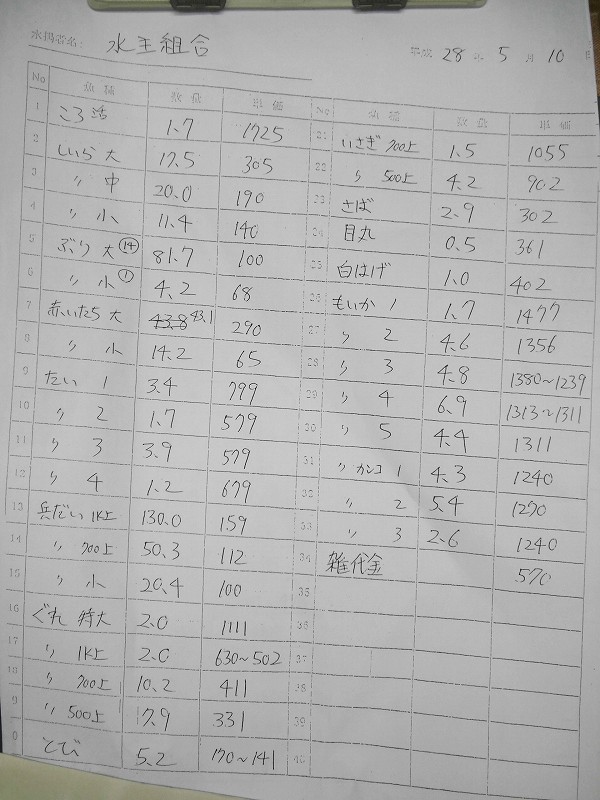 水揚者名: 水主組合 平成 28 年 5 月 10 日
No 魚種 数量 単価
1 ころ活 1.7 1725
2 しいら大 17.5 305
3 〃 中 20.0 190
4 〃 小 11.4 140
5 ぶり 大 ⑭ 81.7 100
6 〃 小 ① 4.2 68
7 赤いたち 大 43.8 43.1 290
8 〃 小 14.2 65
9 たい 1 3.4 799
10 〃 2 1.7 579
11 〃 3 3.9 579
12 〃 4 1.2 679
13 兵だい 1K上 130.0 159
14 〃 700上 50.3 112
15 〃 小 20.4 100
16 ぐれ 特大 2.0 1111
17 〃 1K上 2.0 630~502
18 〃 700上 10.2 411
19 〃 500上 7.9 331
20 とび 5.2 170~141
No 魚種 数量 単価
21 いさぎ 700上 1.5 1055
22 〃 500上 4.2 902
23 さば 2.9 302
24 目丸 0.5 361
25 白はげ 1.0 402
26 もいか 1 1.7 1477
27 〃 2 4.6 1356
28 〃 3 4.8 1380~1239
29 〃 4 6.9 1313~1311
30 〃 5 4.4 1311
31 〃 カンコ 1 4.3 1240
32 〃 2 5.4 1270
33 〃 3 2.6 1240
34 雑代金 570
35
36
37
38
39
40